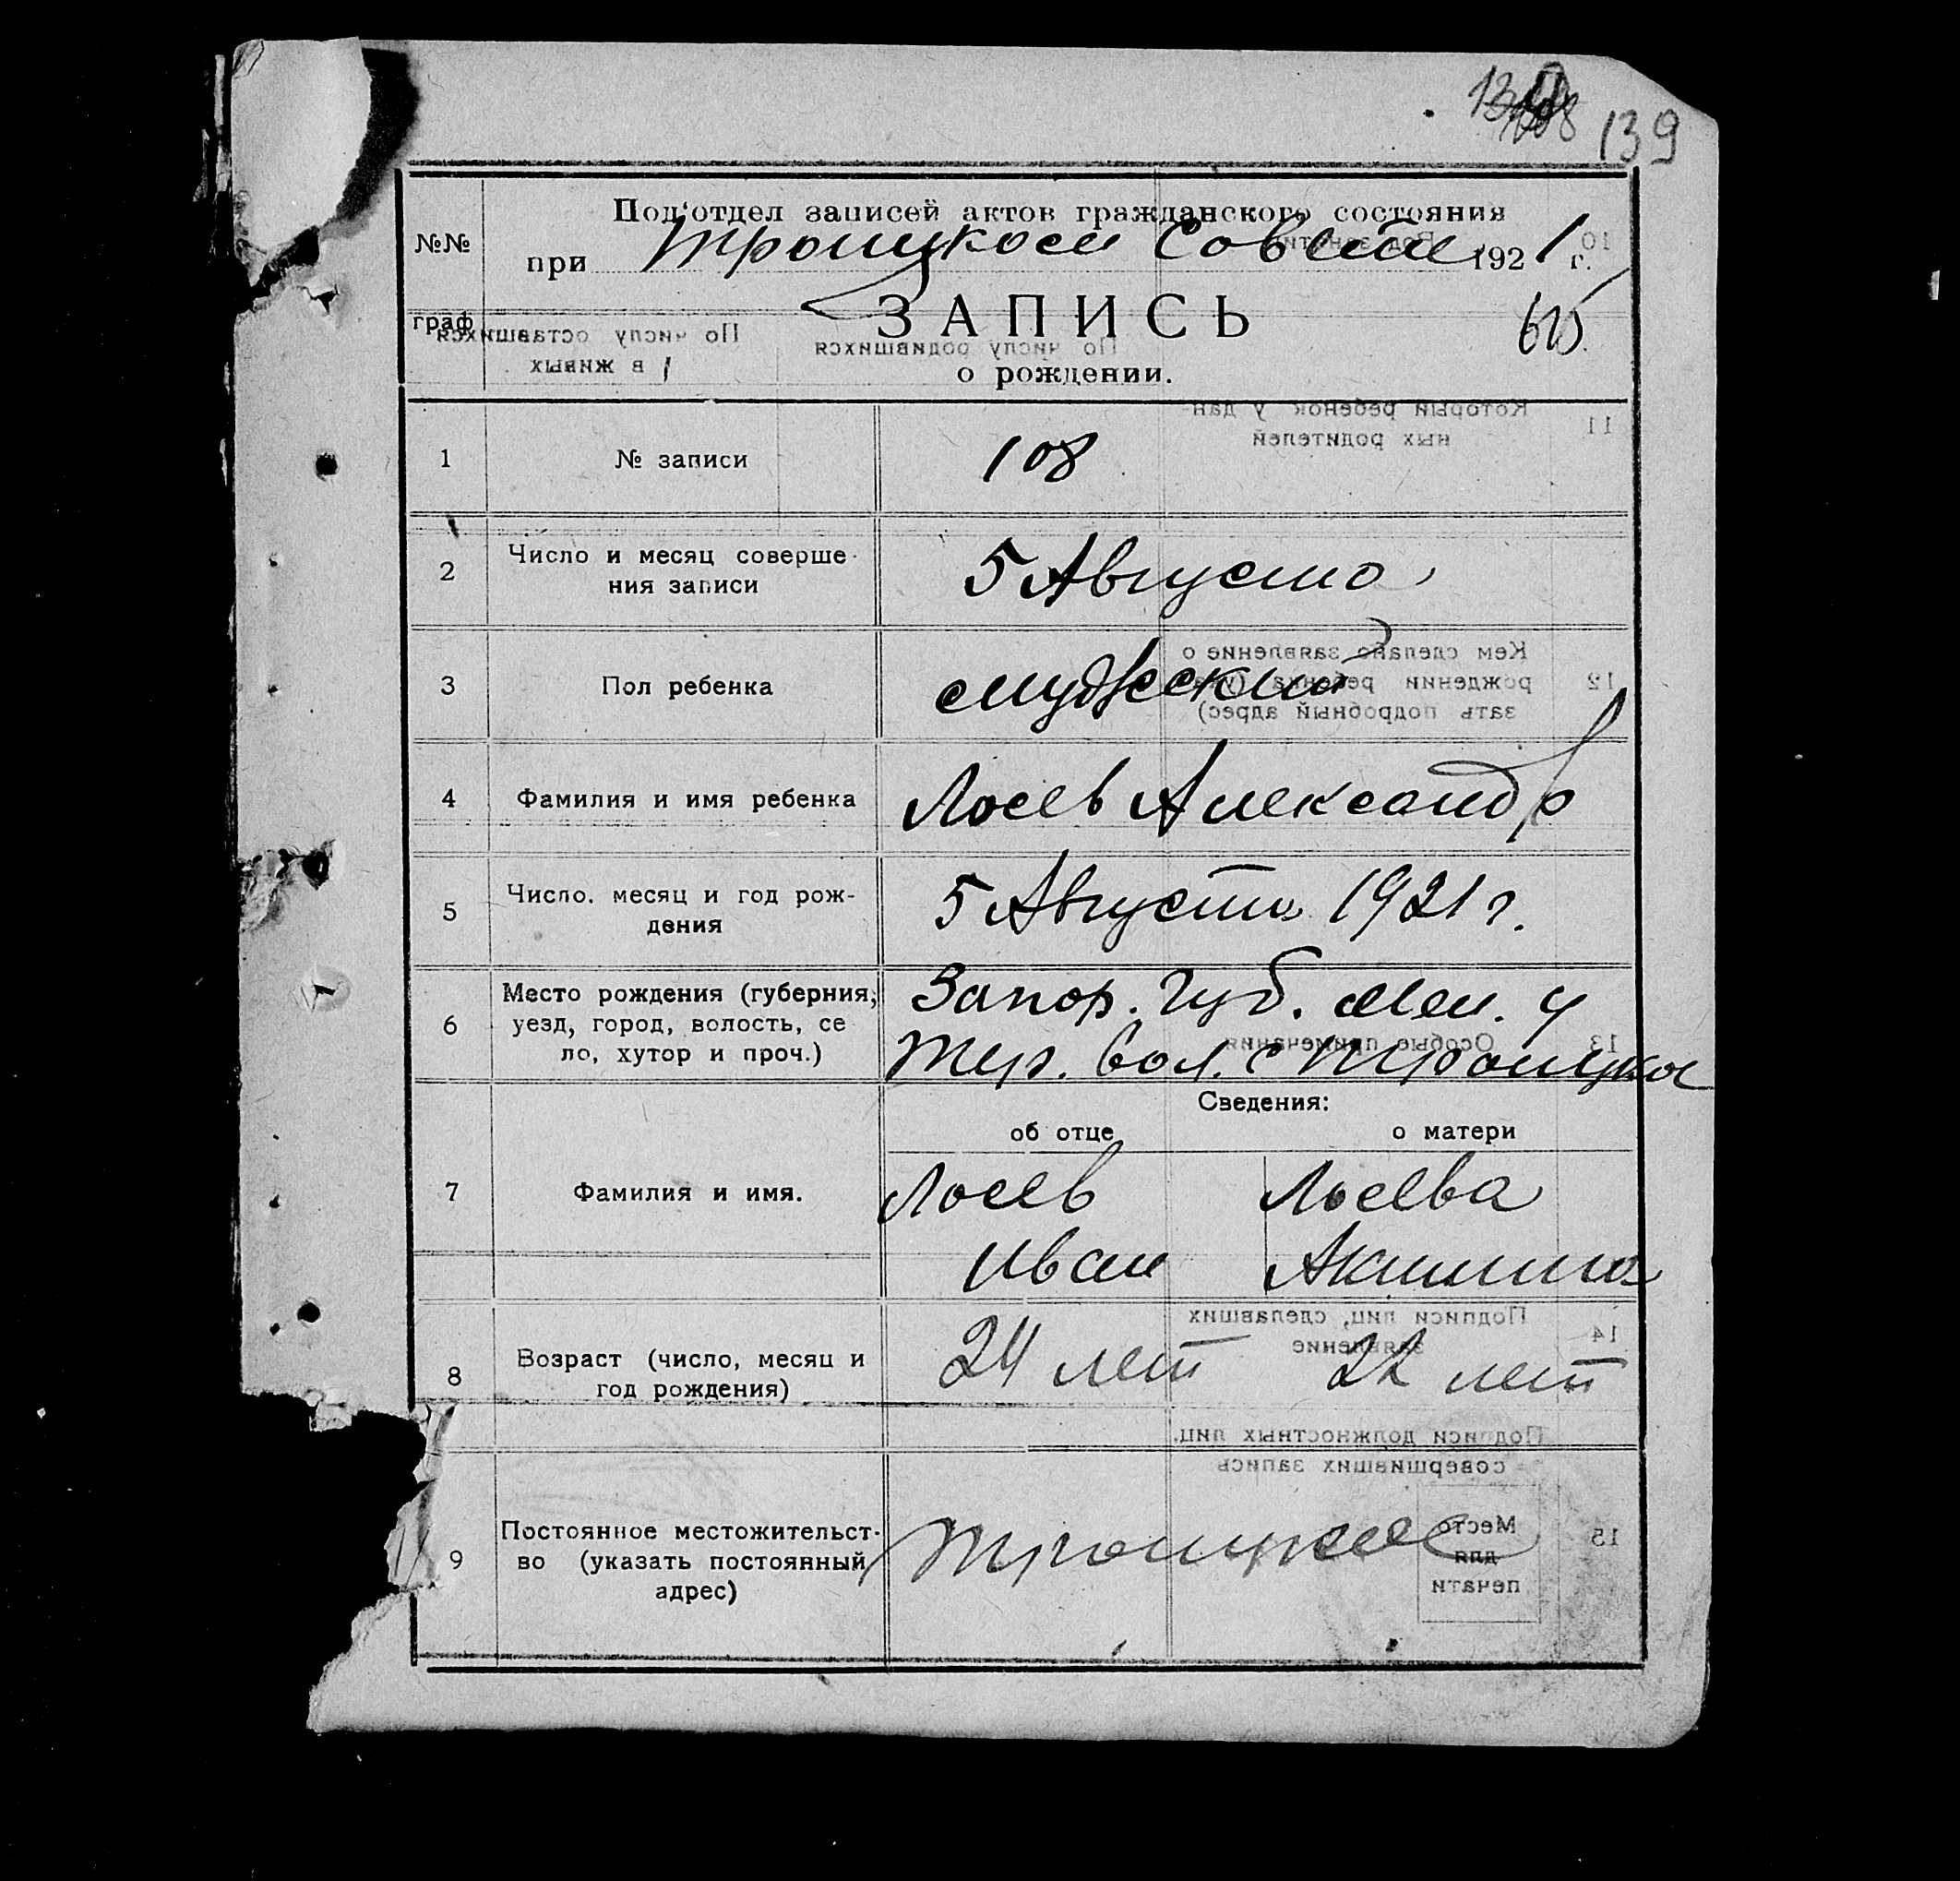 139
Под'отдел записей актов гражданского состояния
№№ при Троицком Совете 1921 г.
граф
ЗАПИСЬ
о рождении.
1 № записи 108
2 Число и месяц соверше-
ния записи 5 Августа
3 Пол ребенка мужеский
4 Фамилия и имя ребенка Лосев Александр
5 Число. месяц и год рож-
дения 5 Августа 1921 г.
6 Место рождения (губерния,
уезд, город, волость, се
ло, хутор и проч.)
Запор. Губ. Мел. у
вол. с Троицкое
Сведения:
об отце о матери
7 Фамилия и имя. Лосев Лосева
Иван Акилина
8 Возраст (число, месяц и
год рождения) 24 лет 22 лет
9 Постоянное местожительст-
во (указать постоянный
адрес)
Троицкое
По числу оставшихся
в живых 1
По числу родившихся
11 Который ребенок у дан-
ных родителей
12 Кем сделано заявление о
рождении ребенка
зать подробный адрес)
13 Особые примечания
14 Подписи лиц, сделавших
заявление
Подписи должностных лиц,
совершивших запись
15 Место
для
печати